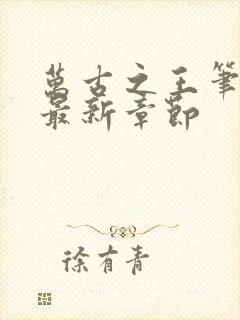 萬古之王筆
最新章節
徐有青